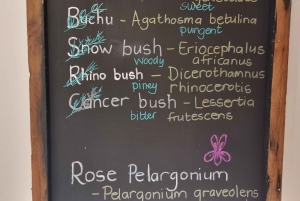 sweet
Buchu - Agathosma betulina
purgent
Snow bush - Eriocephalus
woody africanus
Rhino bush - Dicerothamnus
piney rhinocerotis
Cancer bush - Lessertia
bitter frutescens
Rose Pelargonium
- Pelargonium graveolens